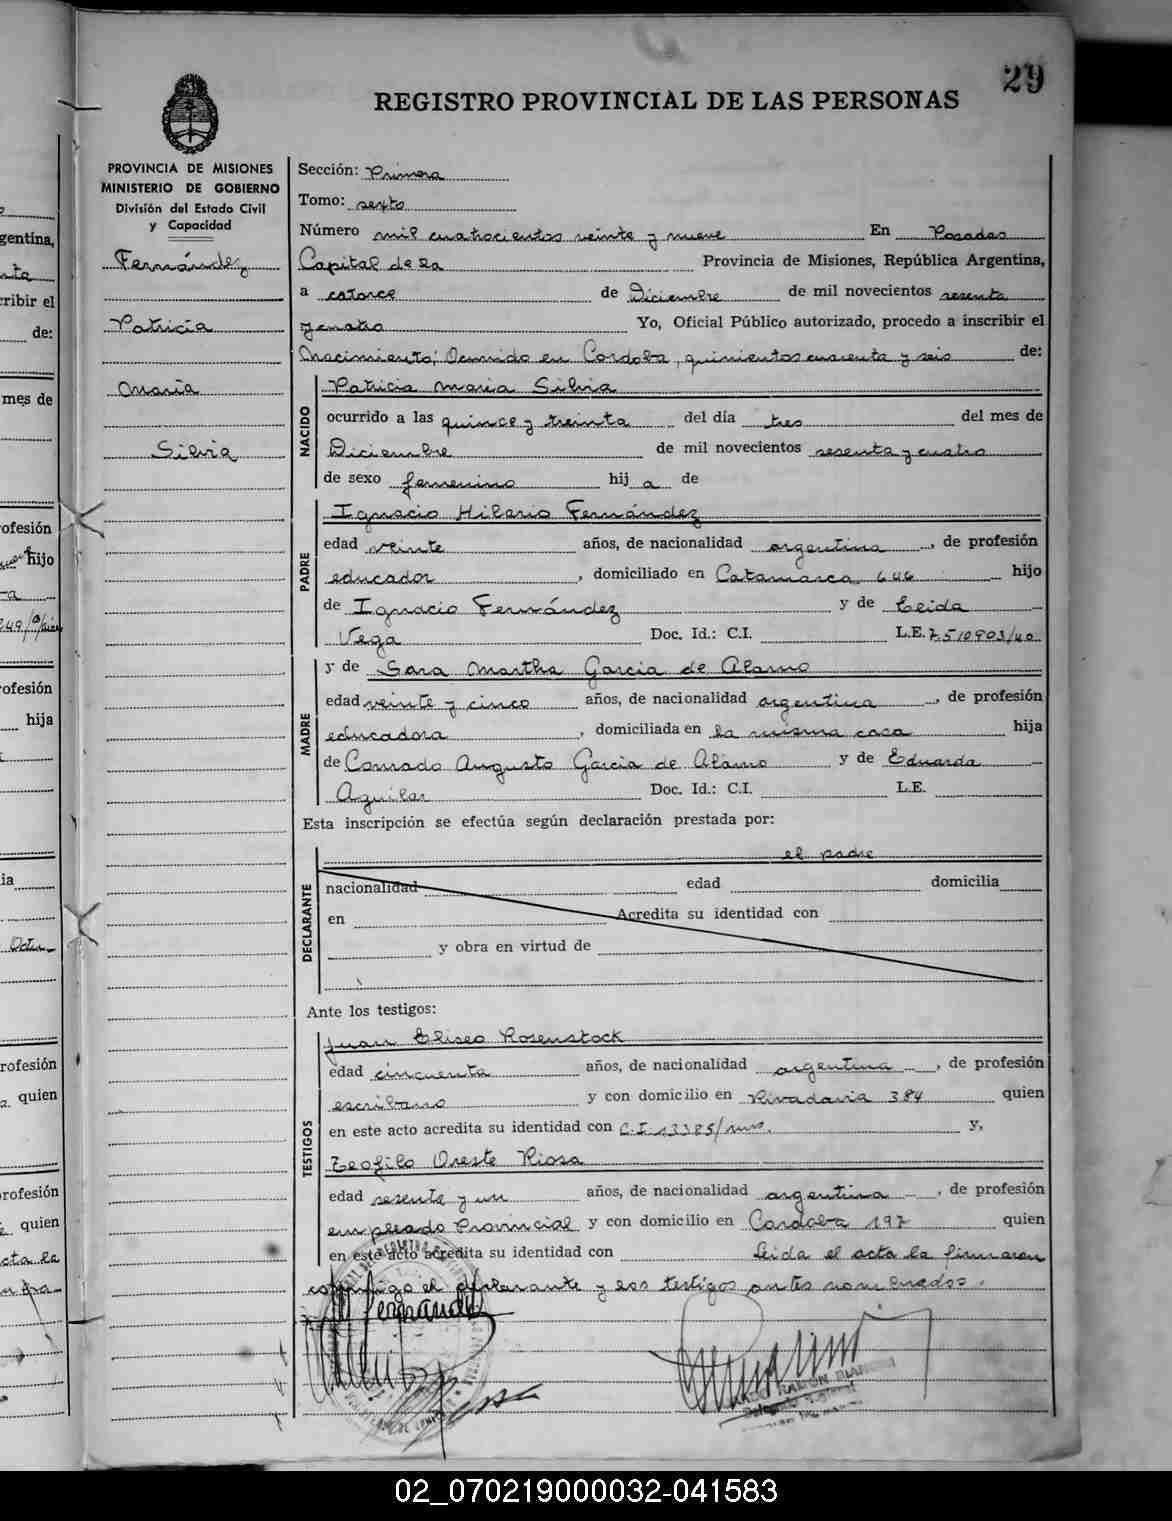 29
REGISTRO PROVINCIAL DE LAS PERSONAS
PROVINCIA DE MISIONES
MINISTERIO DE GOBIERNO
División del Estado Civil
y Capacidad
Fernández
Patricia
María
Silvia
Sección: Primera
Tomo: sexto
Número mil cuatrocientos veinte y nueve En Posadas
Capital de la Provincia de Misiones, República Argentina,
a catorce de Diciembre de mil novecientos sesenta
y cuatro Yo, Oficial Público autorizado, procedo a inscribir el
Nacimiento; Ocurrido en Cordoba, quinientos cuarenta y seis de:
NACIDO
Patricia María Silvia
ocurrido a las quince y treinta del día tres del mes de
Diciembre de mil novecientos sesenta y cuatro
de sexo femenino hij a de
PADRE
Ignacio Hilario Fernández
edad veinte años, de nacionalidad argentina, de profesión
educador, domiciliado en Catamarca 646 hijo
de Ignacio Fernández y de Leida
Vega Doc. Id.: C.I. L.E. 7.510.903/40
MADRE
y de Sara Martha García de Alamo
edad veinte y cinco años, de nacionalidad argentina, de profesión
educadora, domiciliada en la misma casa hija
de Conrado Augusto García de Alamo y de Eduarda
Aguilar Doc. Id.: C.I. L.E.
Esta inscripción se efectúa según declaración prestada por:
DECLARANTE
el padre
nacionalidad edad domicilia
en Acredita su identidad con
y obra en virtud de
Ante los testigos:
TESTIGOS
Juan Eliseo Rosenstock
edad cincuenta años, de nacionalidad argentina, de profesión
escribano y con domicilio en Rivadavia 384 quien
en este acto acredita su identidad con C.I. 13385/mns. y,
Teofilo Oreste Riosa
edad sesenta y un años, de nacionalidad argentina, de profesión
empleado Provincial y con domicilio en Cordoba 197 quien
en este acto acredita su identidad con Leida el acta la firmaron
conmigo el declarante y los testigos antes nombrados.
Fernández
02_070219000032-041583